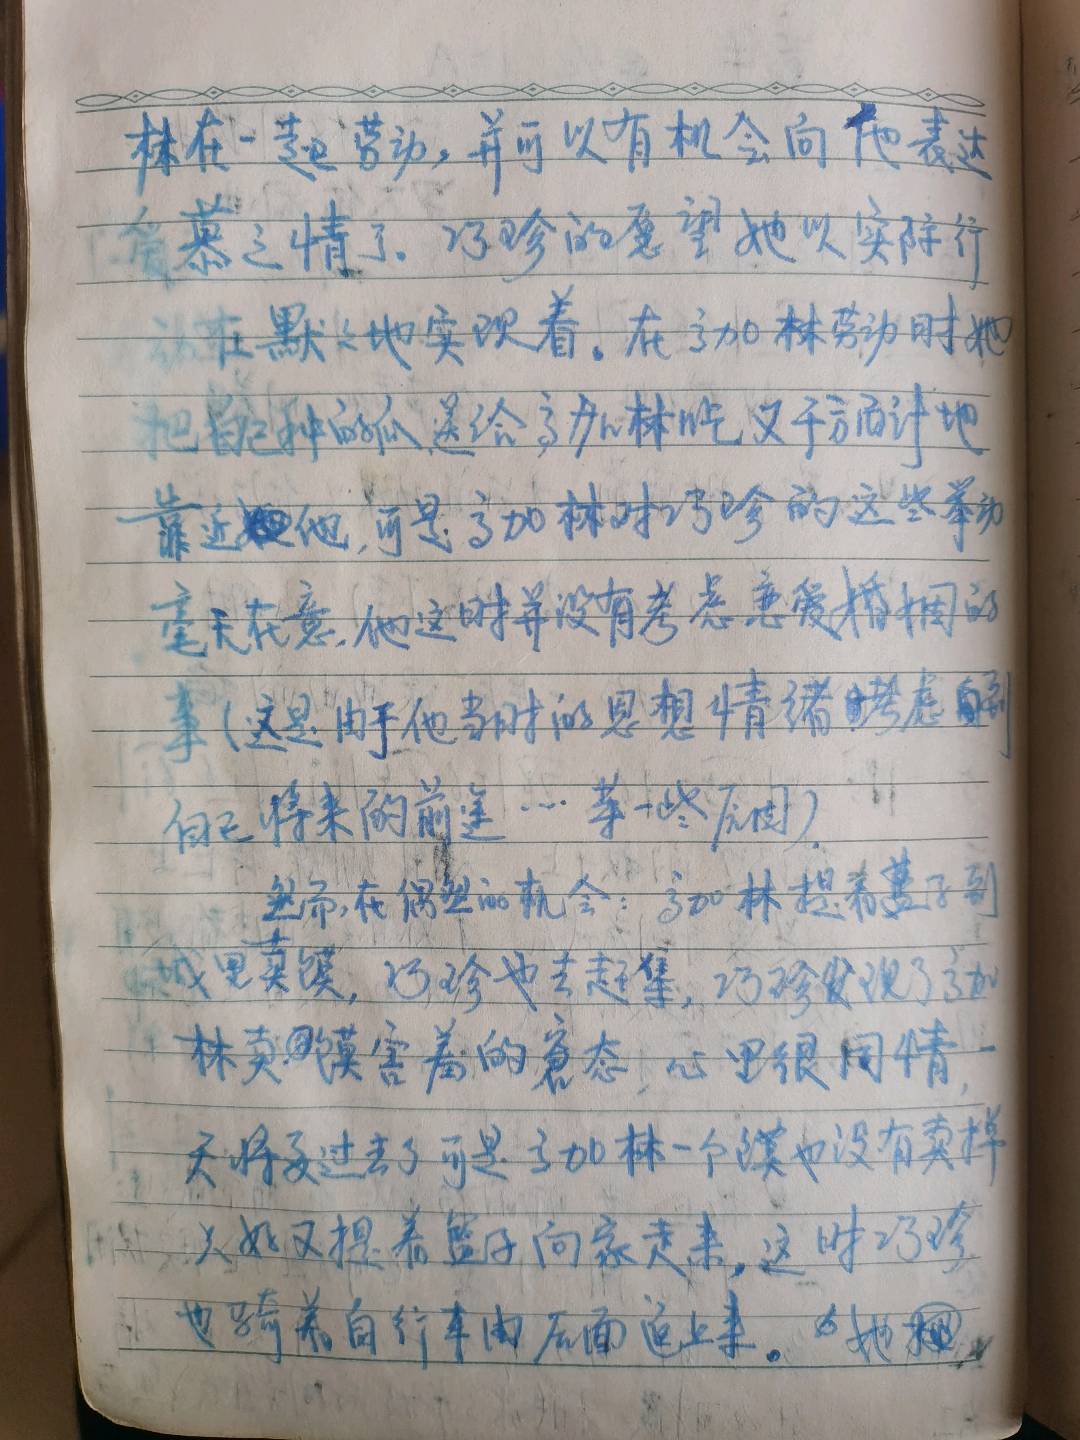 林在一起劳动，并可以有机会向他表达
爱慕之情了。巧珍的愿望她以实际行
动在默々地实现着。在高加林劳动时她
把自己种的瓜送给高加林吃又千方百计地
靠近他，可是高加林对巧珍的这些举动
毫无在意，他这时并没有考虑恋爱婚姻的
事（这是由于他当时的思想情绪考虑到
自己将来的前途…等一些原因）。
然而，在偶然的机会：高加林提着篮子到
城里卖馍，巧珍也去赶集，巧珍发现了高加
林卖馍害羞的态，心里很同情，一
天将要过去了可是高加林一个馍也没有卖掉
只好又提着篮子向家走来，这时巧珍
也骑着自行车由后面追上来。她